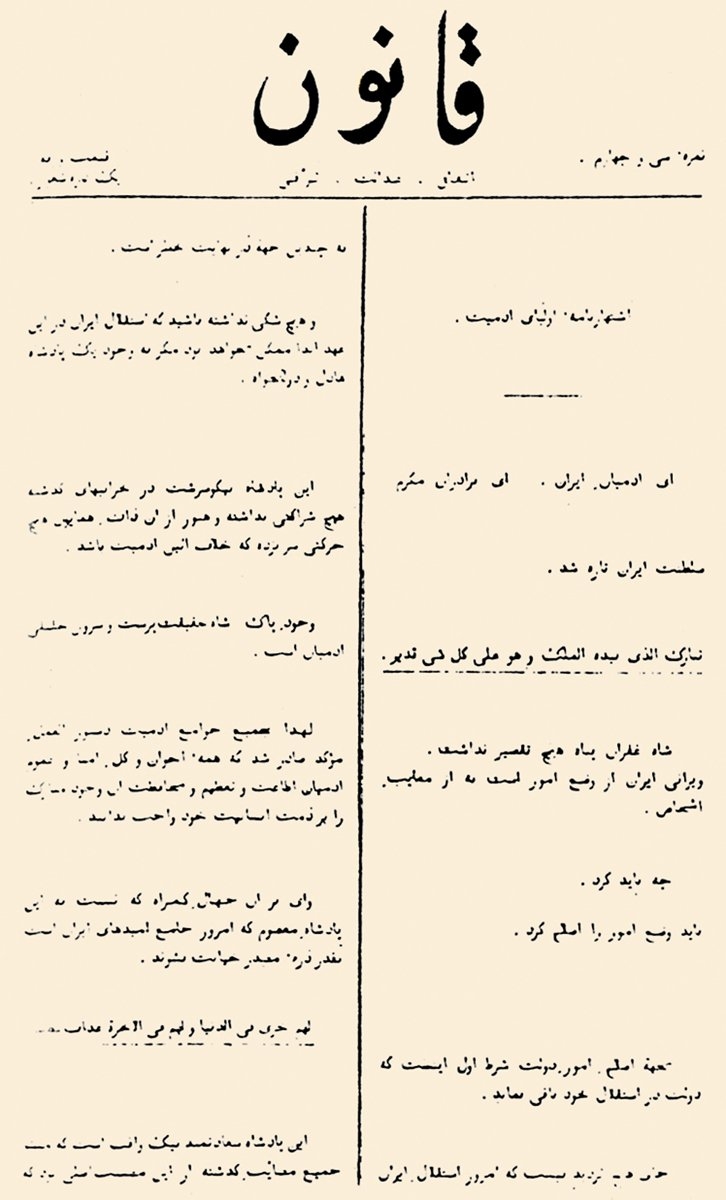 قانون
نمره سی و چهارم .
اتفاق . عدالت . ترقی
قیمت .
یک ذره شعور .
اشتهارنامه اولیای ادمیت .
ای ادمیان ایران . ای برادران مکرم
سلطنت ایران تازه شد .
تبارک الذی بیده الملک و هو علی کل شی قدیر .
شاه غفران پناه هیچ تقصیر نداشت .
ویرانی ایران از وضع امور است نه از معایب
اشخاص .
چه باید کرد .
باید وضع امور را اصلاح کرد .
بجهة اصلاح امور دولت شرط اول اینست که
دولت در استقلال خود باقی بماند .
هیچ تردید نیست که امروز استقلال ایران
به چندین جهة در نهایت خطر است .
و هیچ شکی نداشته باشید که استقلال ایران در این
عهد ابدا ممکن نخواهد بود مگر به وجود یک پادشاه
عادل و دولتخواه .
این پادشاه نیکوسرشت در خرابیهای گذشته
هیچ شراکتی نداشته و هنوز از ان ذات همایون هیچ
حرکتی سر نزده که خلاف ائین ادمیت باشد .
وجود پاک شاه حقیقت پرست و سرور حقیقی
ادمیان است .
لهذا بجمیع جوامع ادمیت دستور العمل
مؤکد صادر شد که همه اخوان و کل امنا و عموم
ادمیان اطاعت و تعظیم و محافظت ان وجود مبارک
را بر ذمت انسانیت خود واجب بدانند .
وای بر ان جهال گمراه که نسبت به این
پادشاه معصوم که امروز جامع امیدهای ایران است
بقدر ذره مصدر خیانت بشوند .
لهم خزی فی الدنیا و لهم فی الاخرة عذاب
این پادشاه سعادتمند نیک واقف است که
جمیع مصائب گذشته از این مصیبت اصلی بود که